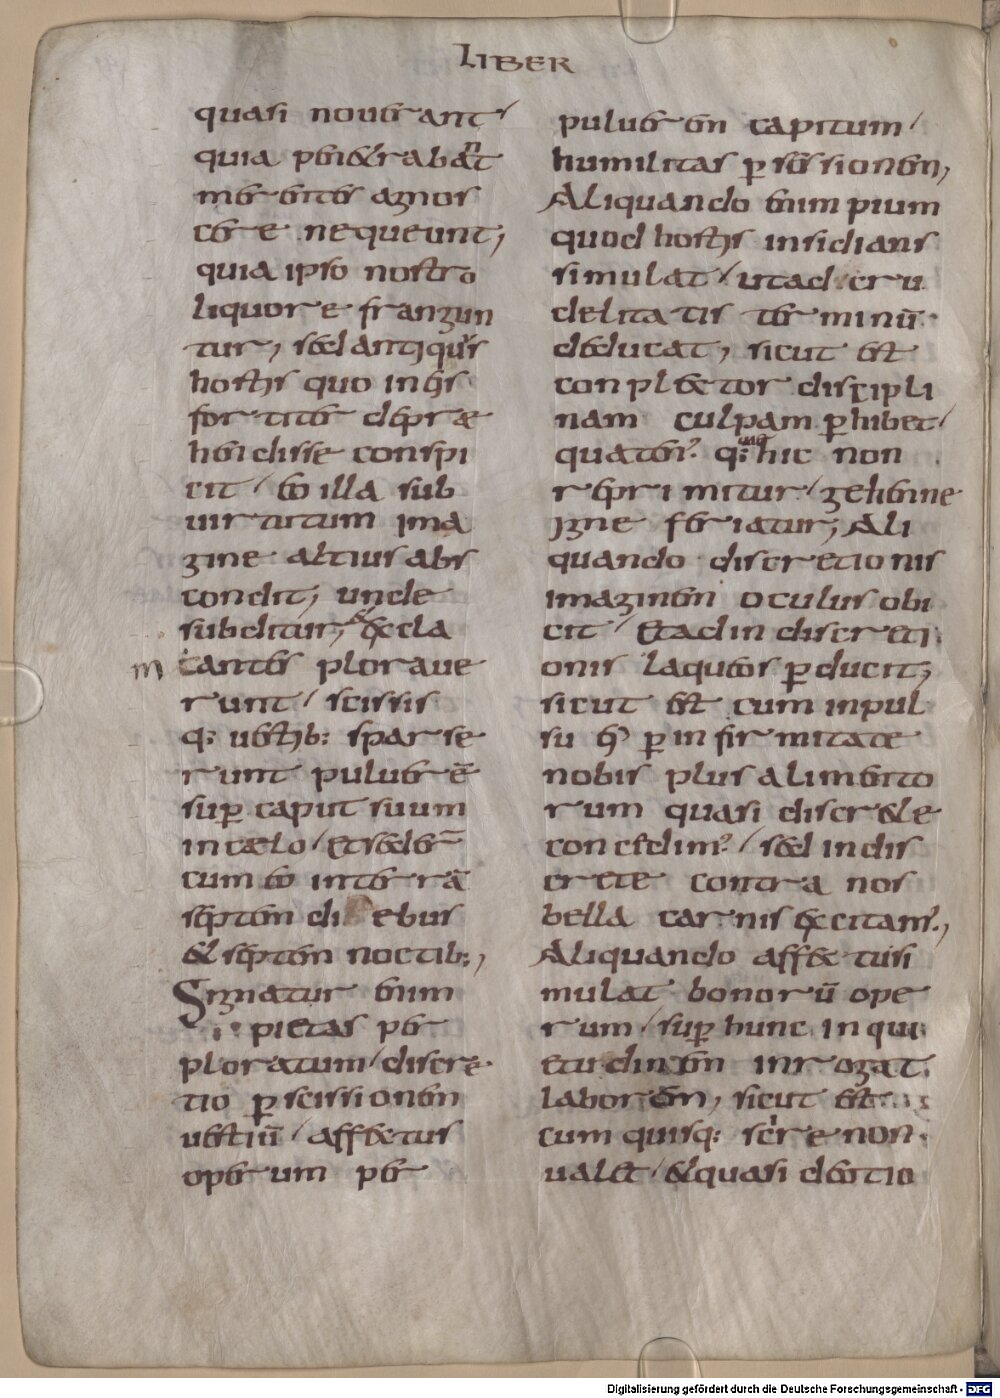 LIBER
quasi nouerant
quia penetrabāt
merentes agnos
cere nequeunt;
quia ipso nostro
liquore frangun
tur, sed antiquus
hostis quo in his
fortiter depræ
hendisse conspi
cit eo illa sub
uirtutum ima
gine altius abs
condit; unde
subditur, excla
mantesploraue
runt scissis
q: uestib: sparse
runt puluerē
sup caput suum
in cælo et seder̄
cum eo in terrā
septem diebus
& septem noctib:,
Signatur enim
pietas per
ploratum discre
tio p scissionem
uestiū affectus
operum per
puluerem capitum
humilitas p sessionem,
Aliquando enim pium
quod hostis insidians
simulat ut ad cru
delitatis terminū
deducat, sicut est
con plector discipli
nam culpam phibet
quaten? q: hic non
reprimitur gehenne
igne feriatur; Ali
quando discretionis
imaginem oculus obi
cit et ad indiscreti
onis laqueos pducit,
sicut est cum inpul
su ei? p infirmitate
nobis plus alimento
rum quasi discrete
concedim? sed indis
crete contra nos
bella carnis excitam?,
Aliquando affectū si
mulat bonorū ope
rum sup hunc inqui
etudinem inrogat
laborem, sicut est
cum quisq: scere non
ualet & quasi de otio